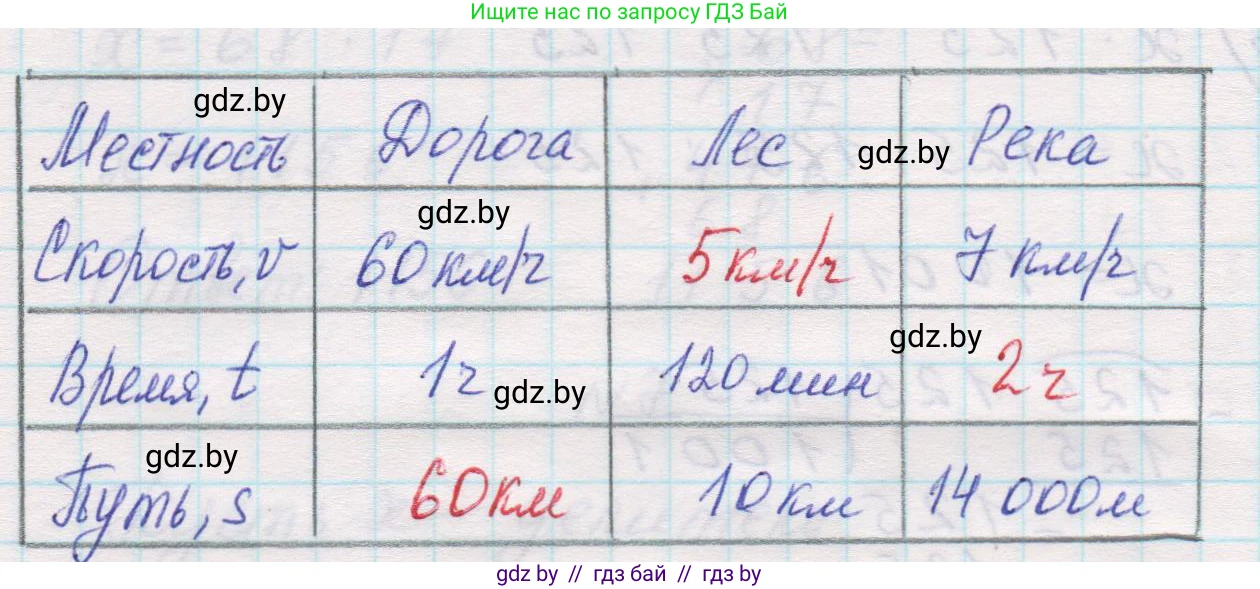 Ищите нас по запросу ГДЗ Бай
gdz.by
Местность Дорога Лес gdz.by Река
gdz.by
Скорость, v 60 км/ч 5 км/ч 7 км/ч
gdz.by
Время, t 1 ч gdz.by 120 мин 2 ч
gdz.by
Путь, s 60 км 10 км 14 000 м
gdz by // гдз бай // гдз by